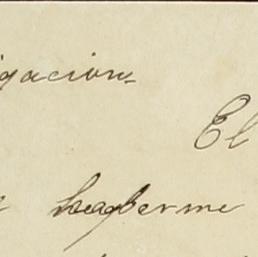 gacion.
El
haberme